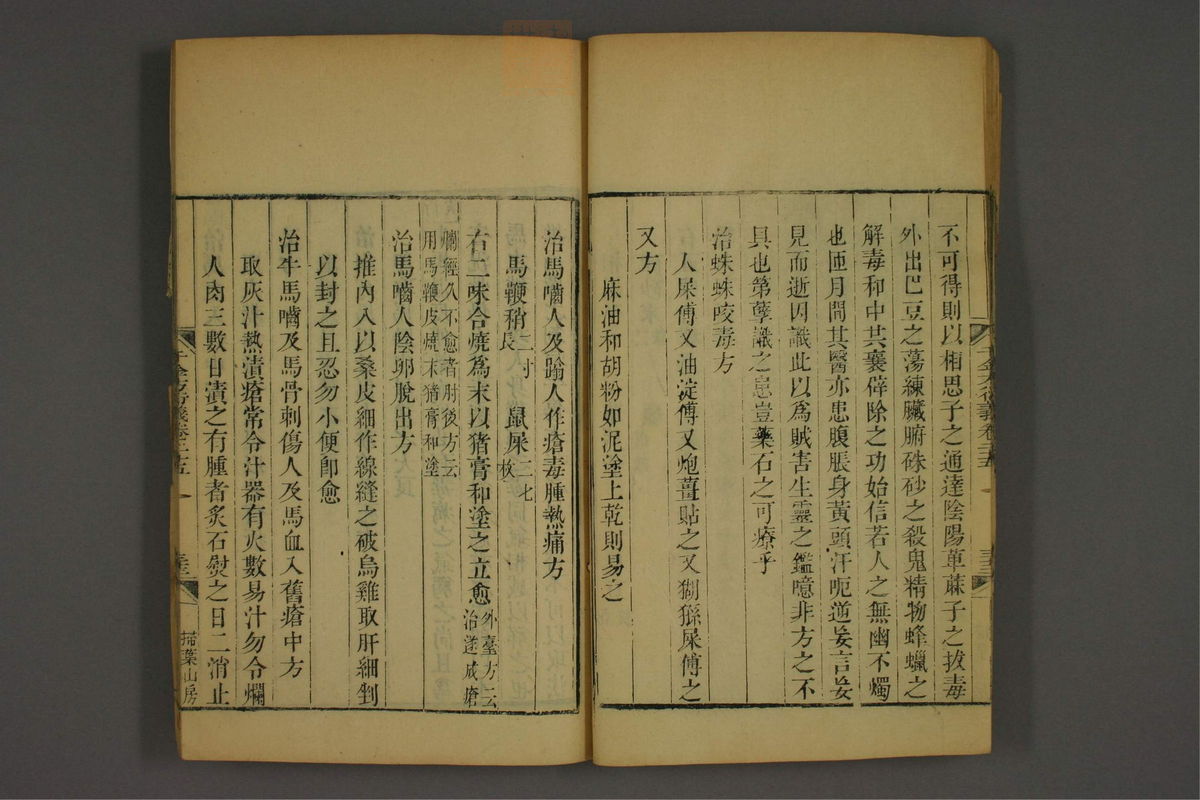 不可得則以相思子之通達陰陽萆蔴子之拔毒
外出巴豆之蕩練臟腑硃砂之殺鬼精物蜂蠟之
解毒和中共襄倂除之功始信若人之無幽不燭
也匝月間其醫亦患腹脹身黃頭汗呃逆妄言妄
見而逝因識此以爲賊害生靈之鑑噫非方之不
具也第孽識之患豈藥石之可療乎
治蛷蛷咬毒方
人屎傅又油淀傅又炮薑貼之又猢猻屎傅之
又方
麻油和胡粉如泥塗上乾則易之
治馬嚙人及蹹人作瘡毒腫熱痛方
馬鞭稍二寸長 鼠屎二七枚
右二味合燒爲末以猪膏和塗之立愈外臺方云治遂成瘡
爛經久不愈者肘後方云用馬鞭皮燒末猪膏和塗
治馬嚙人陰卵脫出方
推內入以桑皮細作線縫之破烏雞取肝細剉
以封之且忍勿小便卽愈
治牛馬嚙及馬骨刺傷人及馬血入舊瘡中方
取灰汁熱漬瘡常令汁器有火數易汁勿令爛
人肉三數日漬之有腫者炙石熨之日二消止
千金方衍義卷二十五
掃葉山房